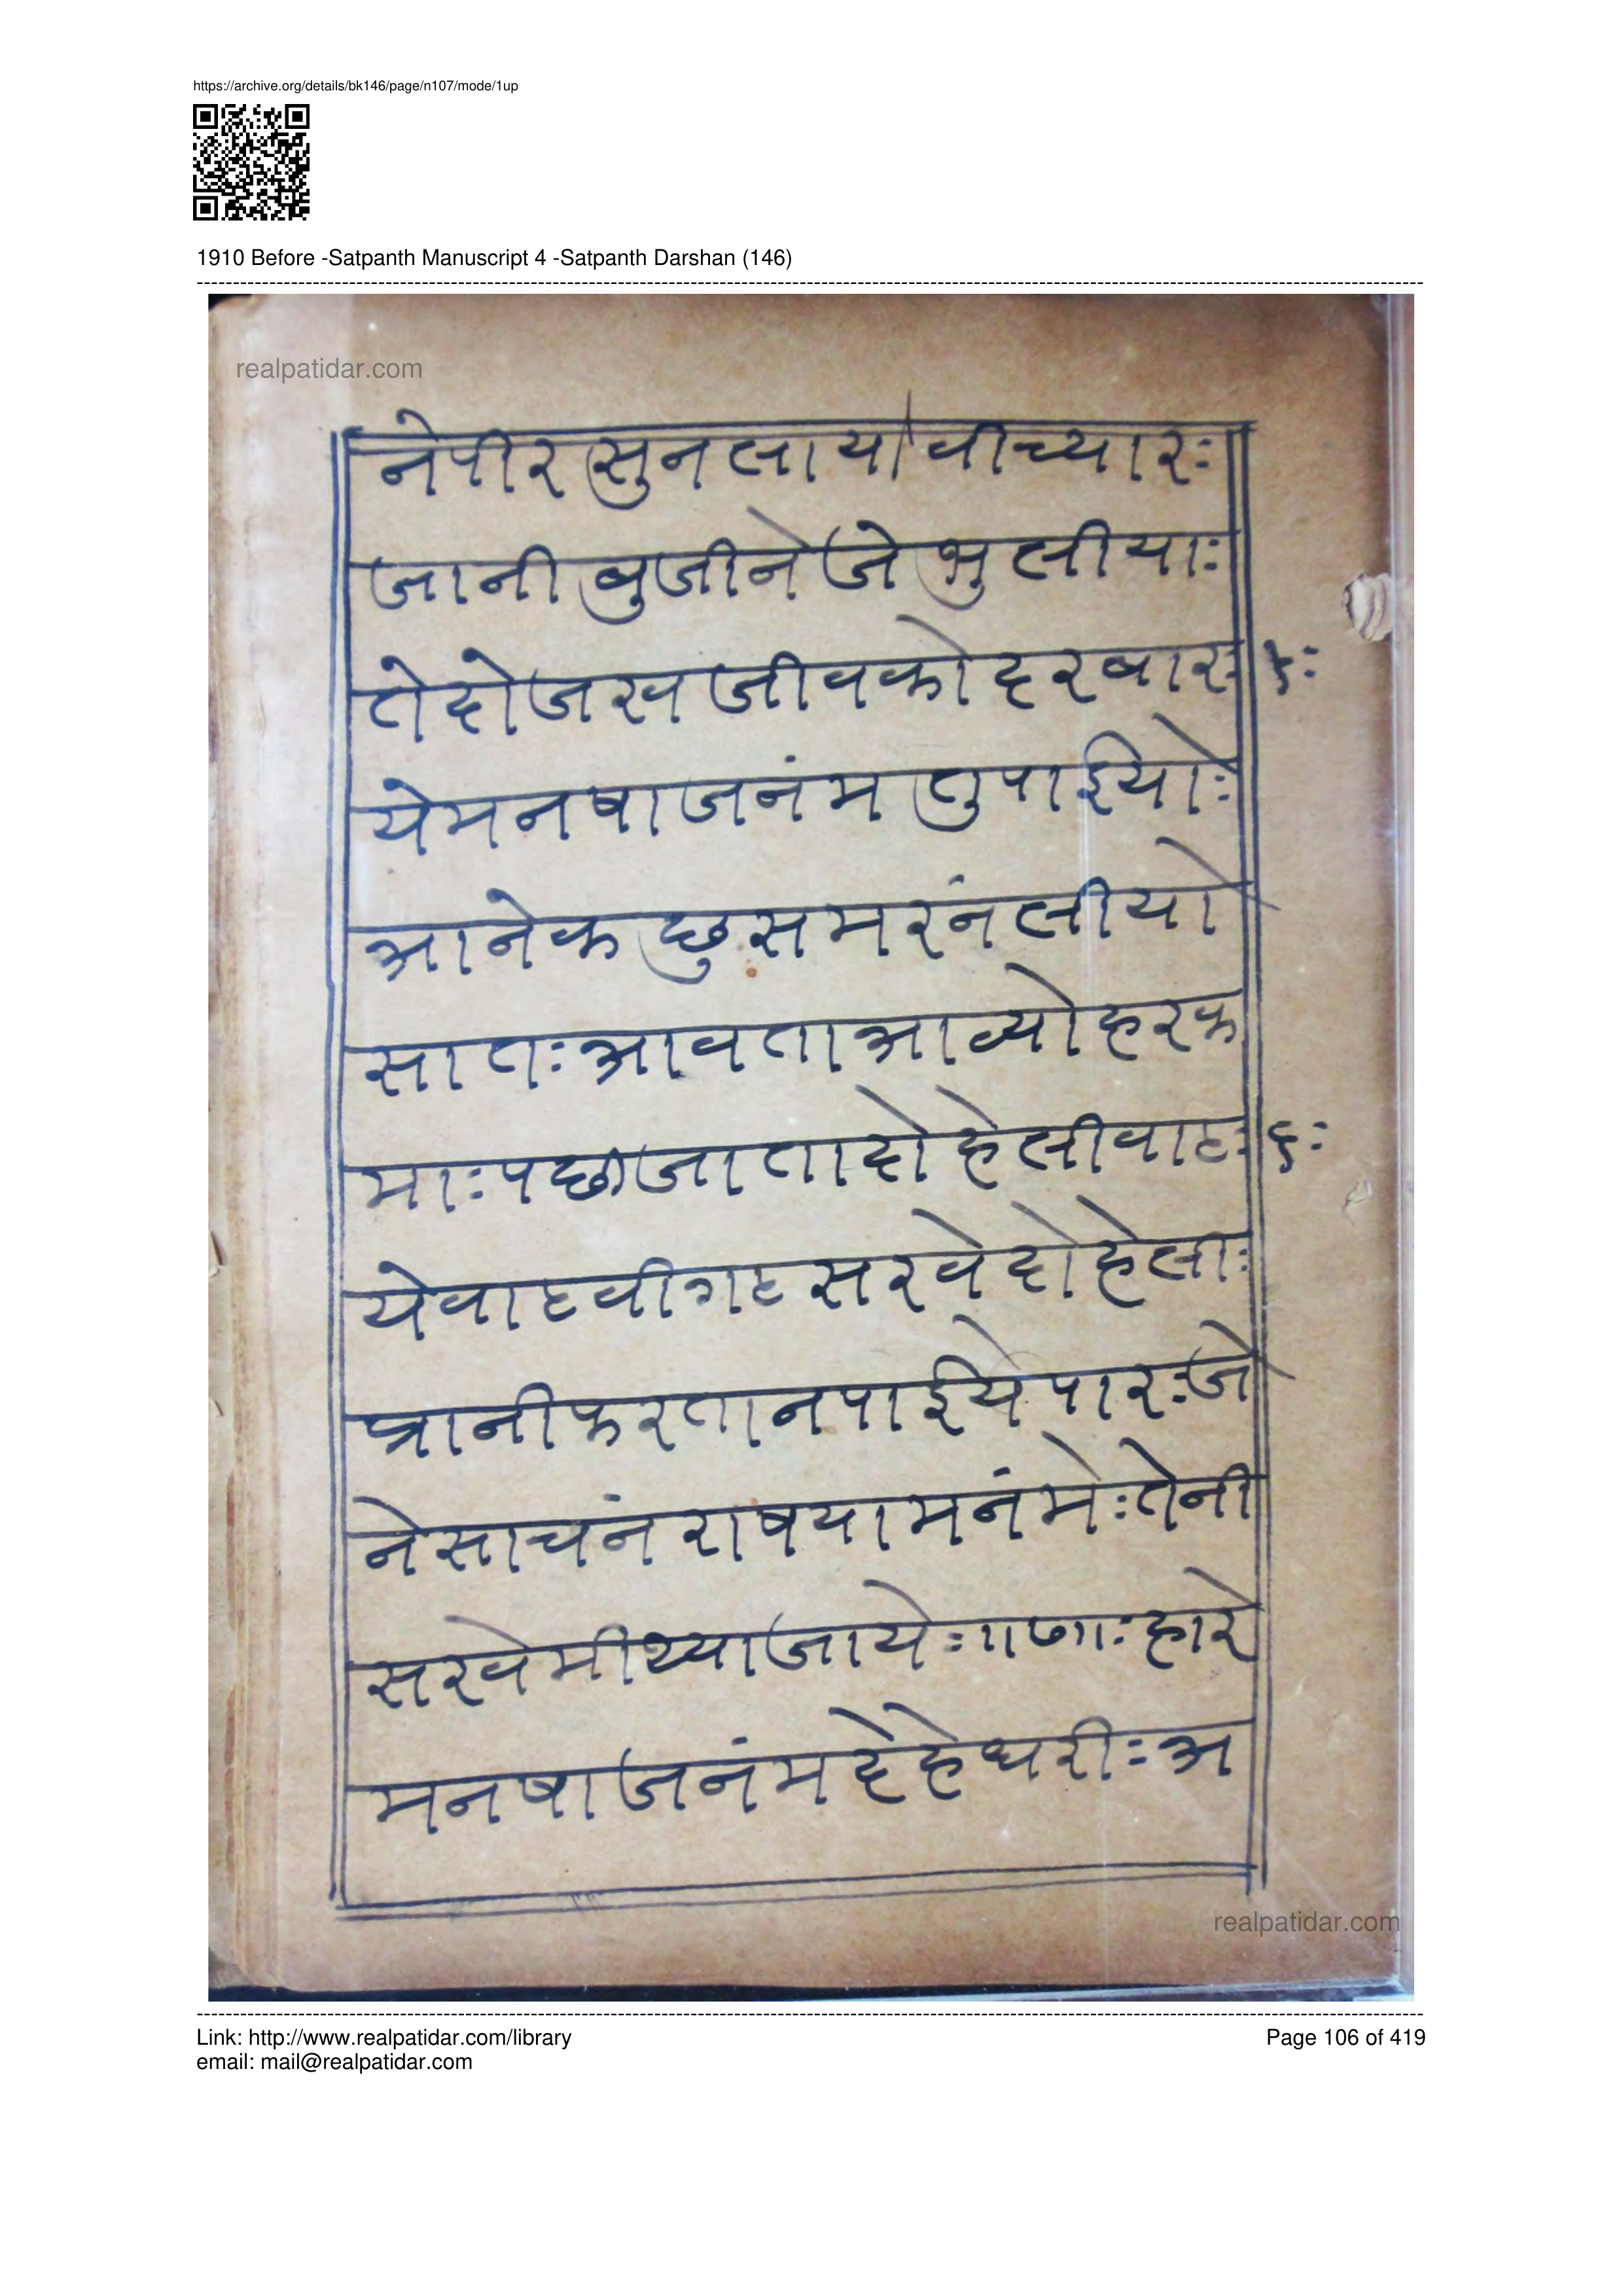 https://archive.org/details/bk146/page/n107/mode/1up
1910 Before -Satpanth Manuscript 4 -Satpanth Darshan (146)
realpatidar.com
नेपीरसुनलाया वीच्यारः
जानीबुजीनेजेभुलीयाः
तेदोजखजीवकोदरबारः ५ः
येमनषाजनंमतुपाईयोः
आनेकछुसमरंनलीयो
सातःआवताआव्योहरक
माःपछाजातादोहेलीवाटः ६ः
येवाटवीगटसरवेदोहेलाः
प्रानीफरतानपाईयेपारःजे
नेसाचंनराषयामनंमेःतेनी
सरवेमीथ्याजायेः॥७॥ःहारे
मनषाजनंमदेहेधरीःअ
realpatidar.com
Link: http://www.realpatidar.com/library
Page 106 of 419
email: mail@realpatidar.com